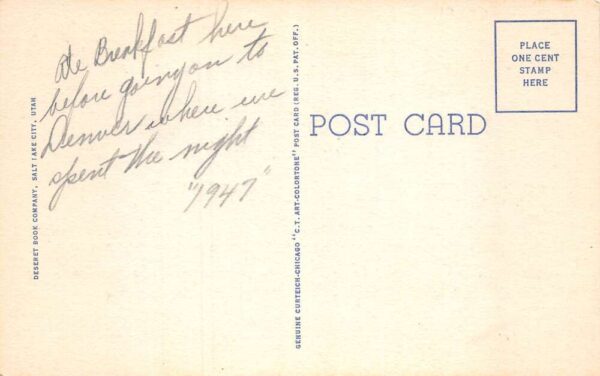 Ate Breakfast here
before going on to
Denver where we
spent the night
"1947"
DESERET BOOK COMPANY, SALT LAKE CITY, UTAH
GENUINE CURTEICH-CHICAGO "C.T. ART-COLORTONE" POST CARD (REG. U.S. PAT. OFF.)
POST CARD
PLACE
ONE CENT
STAMP
HERE